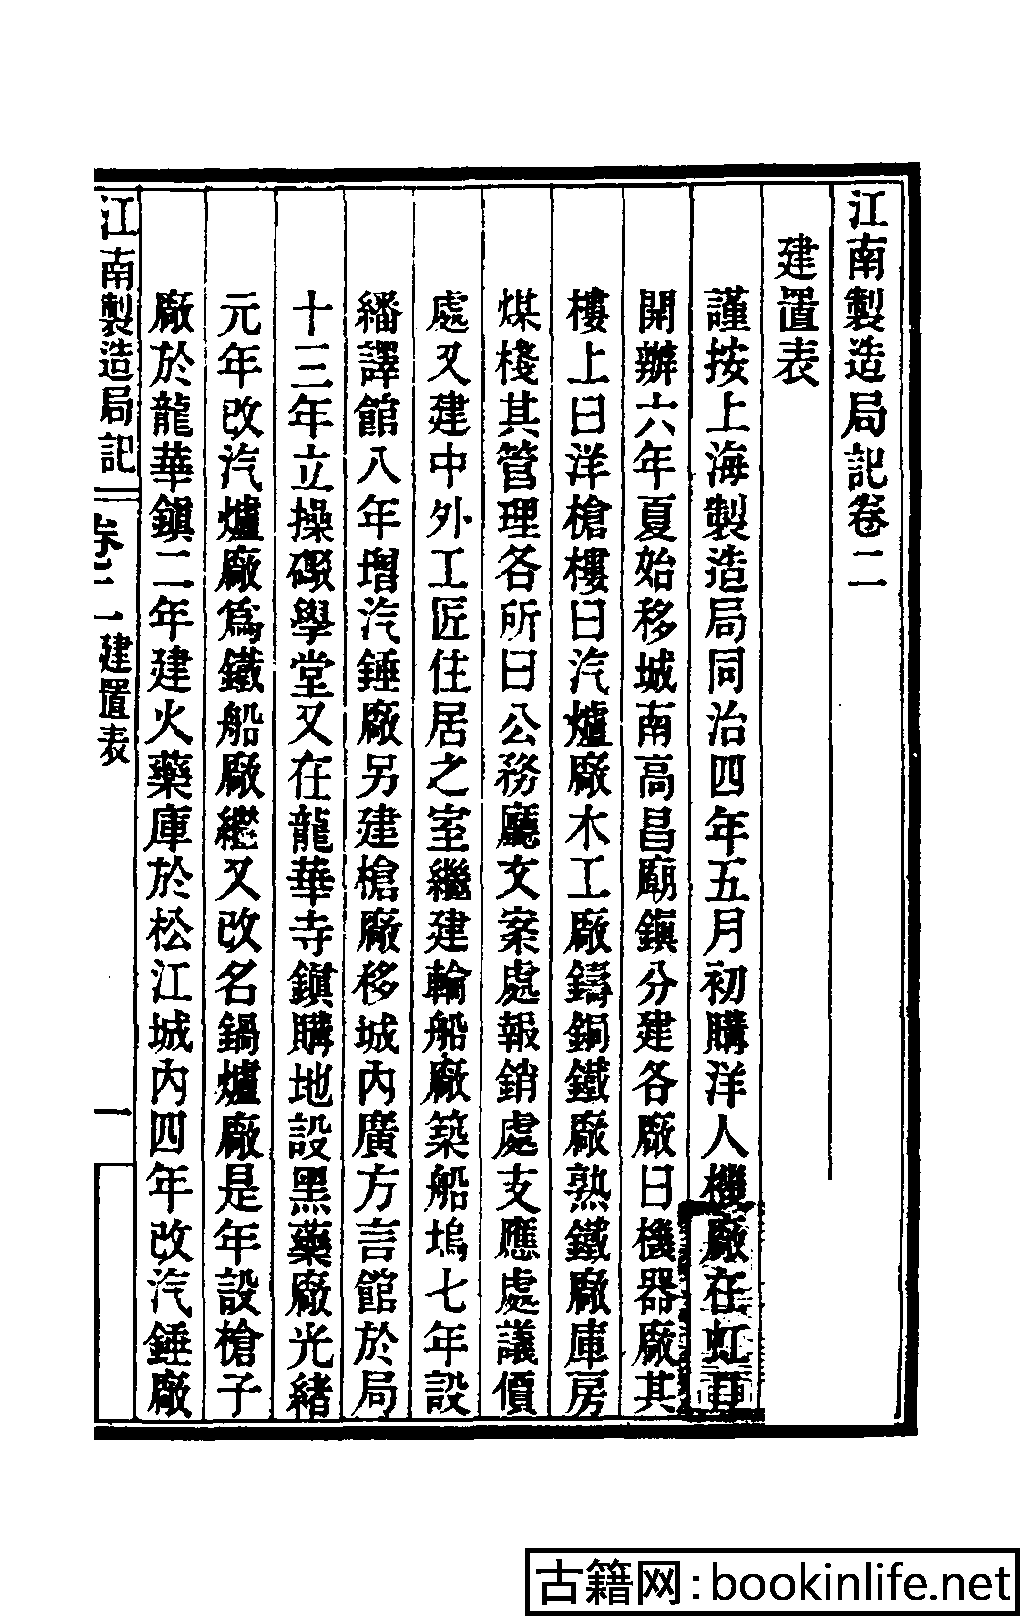 江南製造局記卷二
建置表
謹按上海製造局同治四年五月初購洋人機廠在虹口
開辦六年夏始移城南高昌廟鎮分建各廠曰機器廠其
樓上曰洋槍樓曰汽爐廠木工廠鑄銅鐵廠熟鐵廠庫房
煤棧其管理各所曰公務廳文案處報銷處支應處議價
處又建中外工匠住居之室繼建輪船廠築船塢七年設
繙譯館八年增汽錘廠另建槍廠移城內廣方言館於局
十三年立操礮學堂又在龍華寺鎮購地設黑藥廠光緒
元年改汽爐廠爲鐵船廠繼又改名鍋爐廠是年設槍子
廠於龍華鎮二年建火藥庫於松江城內四年改汽錘廠
江南製造局記 卷二 建置表 一
古籍网:bookinlife.net